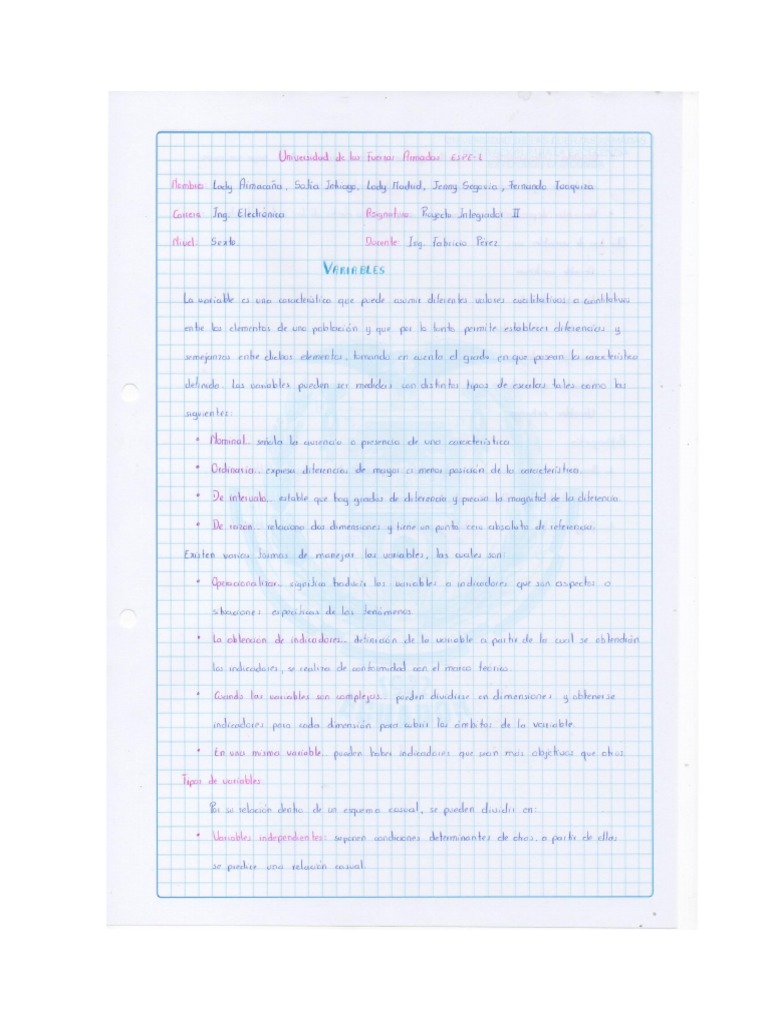 Universidad de las Fuerzas Armadas ESPE-L
Nombre: Lady Aimacaña, Sofía Intriago, Lady Madrid, Jenny Segovia, Fernando Toaquiza
Carrera: Ing. Electrónica Asignatura: Proyecto Integrador II
Nivel: Sexto. Docente: Ing. Fabricio Pérez
VARIABLES
La variable es una característica que puede asumir diferentes valores cualitativos o cuantitativos
entre los elementos de una población y que por lo tanto permite establecer diferencias y
semejanzas entre dichos elementos, tomando en cuenta el grado en que posean la característica
definida. Las variables pueden ser medidas con distintos tipos de escalas tales como las
siguientes:
• Nominal.. señala la ausencia o presencia de una característica
• Ordinaria.. expresa diferencias de mayor a menor posición de la característica
• De intervalo.. estable que hay grados de diferencia y precisa la magnitud de la diferencia.
• De razón.. relaciona dos dimensiones y tiene un punto cero absoluto de referencia.
Existen varias formas de manejar las variables, las cuales son:
• Operacionalizar.. significa traducir las variables a indicadores que son aspectos o
situaciones específicas de los fenómenos.
• La obtencion de indicadores.. definición de la variable a partir de la cual se obtendrán
los indicadores, se realiza de conformidad con el marco teórico.
• Cuando las variables son complejas.. pueden dividirse en dimensiones y obtenerse
indicadores para cada dimensión para cubrir los ámbitos de la variable.
• En una misma variable.. pueden haber indicadores que sean más objetivos que otros
Tipos de variables
Por su relación dentro de un esquema causal, se pueden dividir en:
• Variables independientes: suponen condiciones determinantes de otras, a partir de ellas
se predice una relación causal.